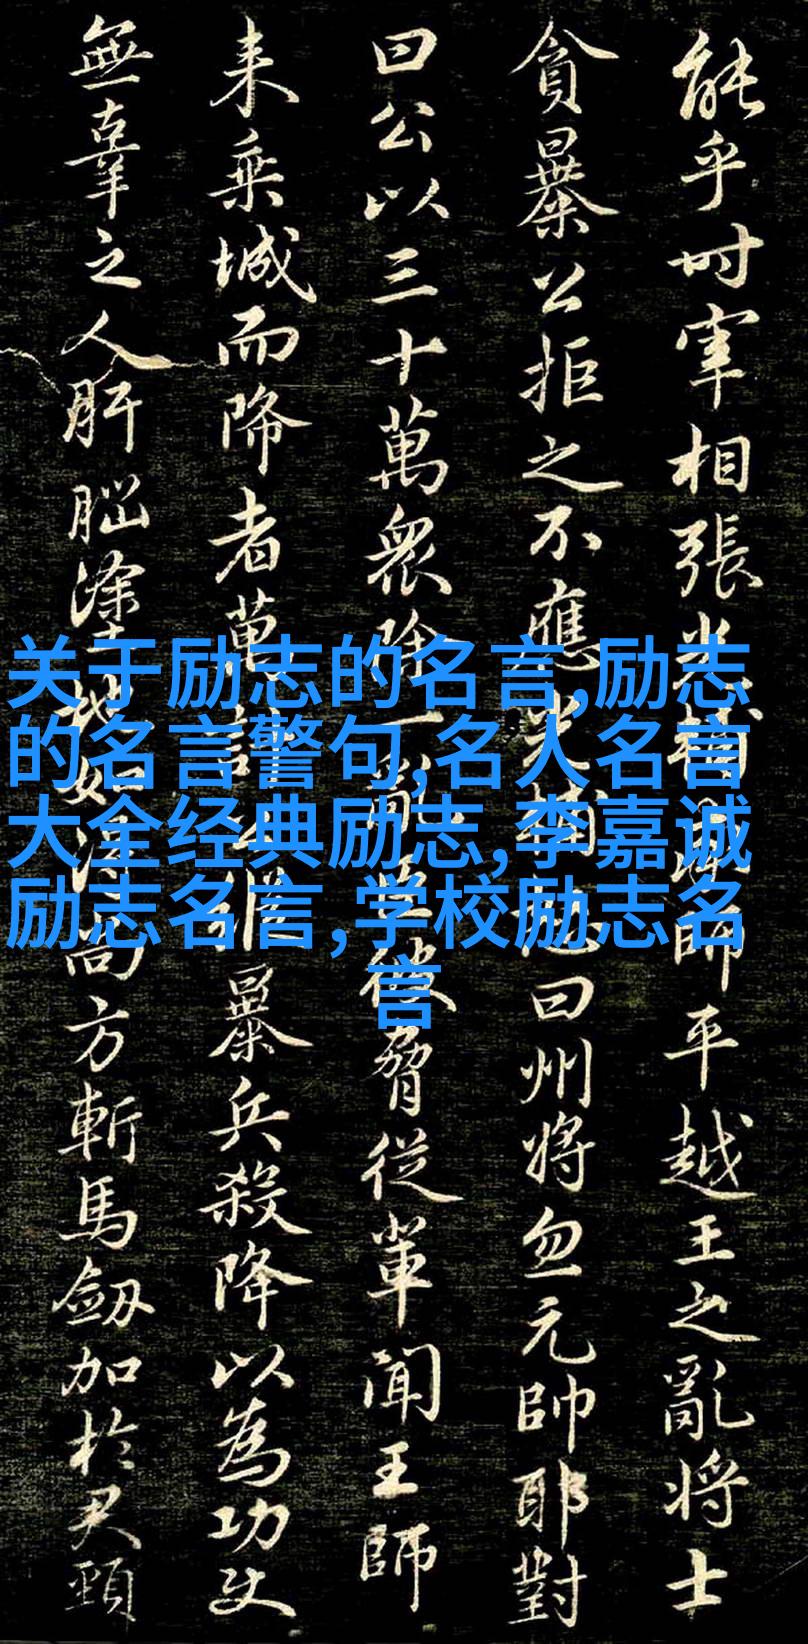 能乎时宰相張光輔師平越王之亂将士
貪暴公拒之不應光輔曰州将忽元帥耶對
曰公以三十萬衆除一亂脅從輩聞王師
来乘城而降者萬計暴兵殺降以為功
無辜之人肝脳塗地如得尚方斬馬劒加於君頸
关于励志的名言,励志
的名言警句,名人名言
大全经典励志,李嘉诚
励志名言,学校励志名
言